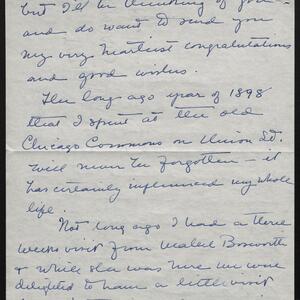 but I'll be thinking of you -
and do want to send you
my very heartiest congratulations
and good wishes.
The long ago year of 1898
that I spent at the old
Chicago Commons on Union St.
will never be forgotten - it
has certainly influenced my whole
life.
Not long ago I had a three
weeks visit from Mabel Bosworth
& while she was here we were
delighted to have a little visit